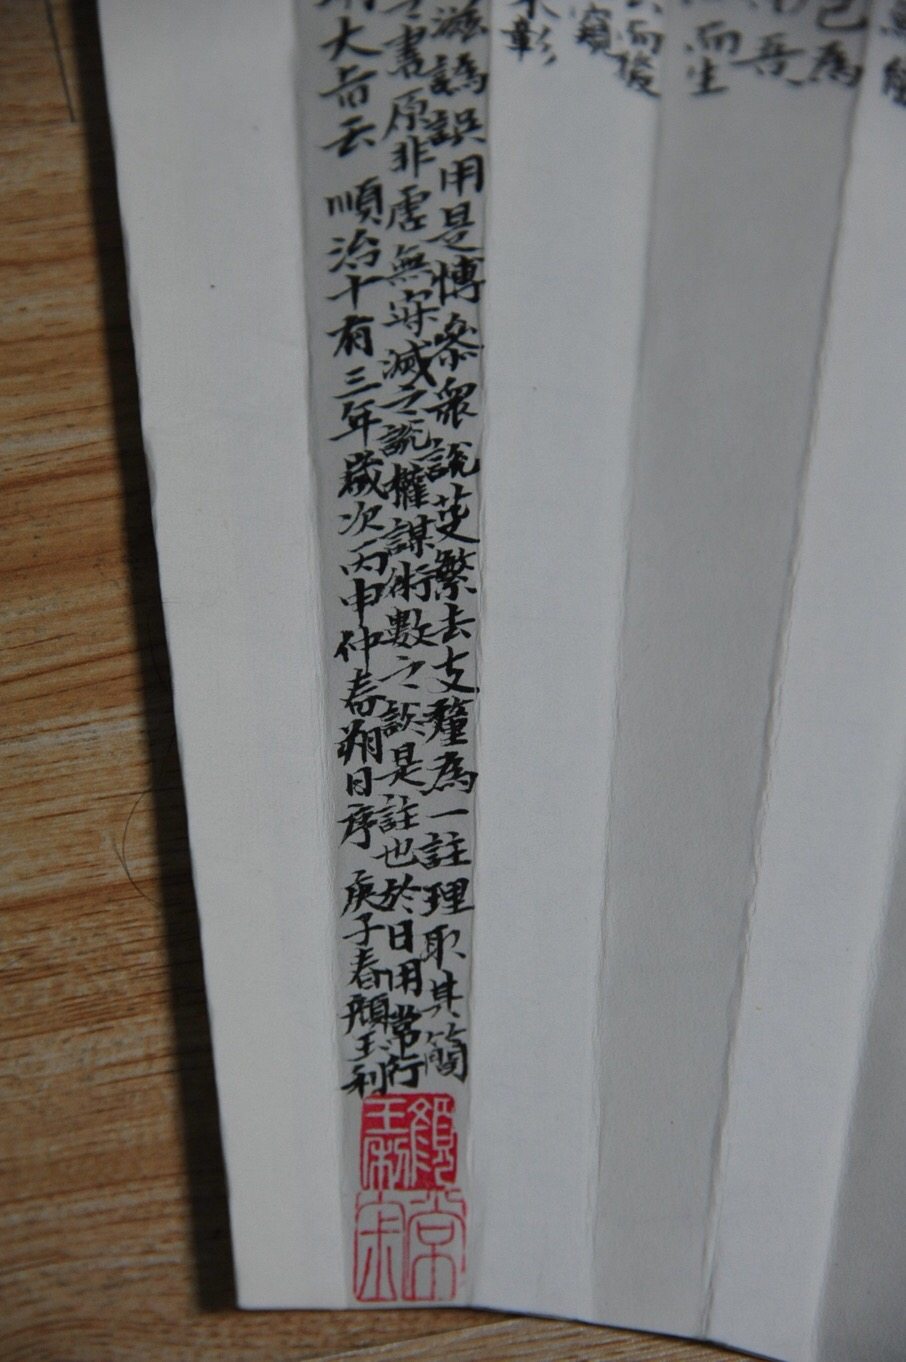 己為
而生
而後
窺
彰
滋譌誤用是博參衆說芟繁去支釐為一註理取其簡
書原非虛無寂滅之說權謀術數之談是註也於日用常行
大旨云 順治十有三年歲次丙申仲春朔日序 庚子春顏玉利
顏玉利